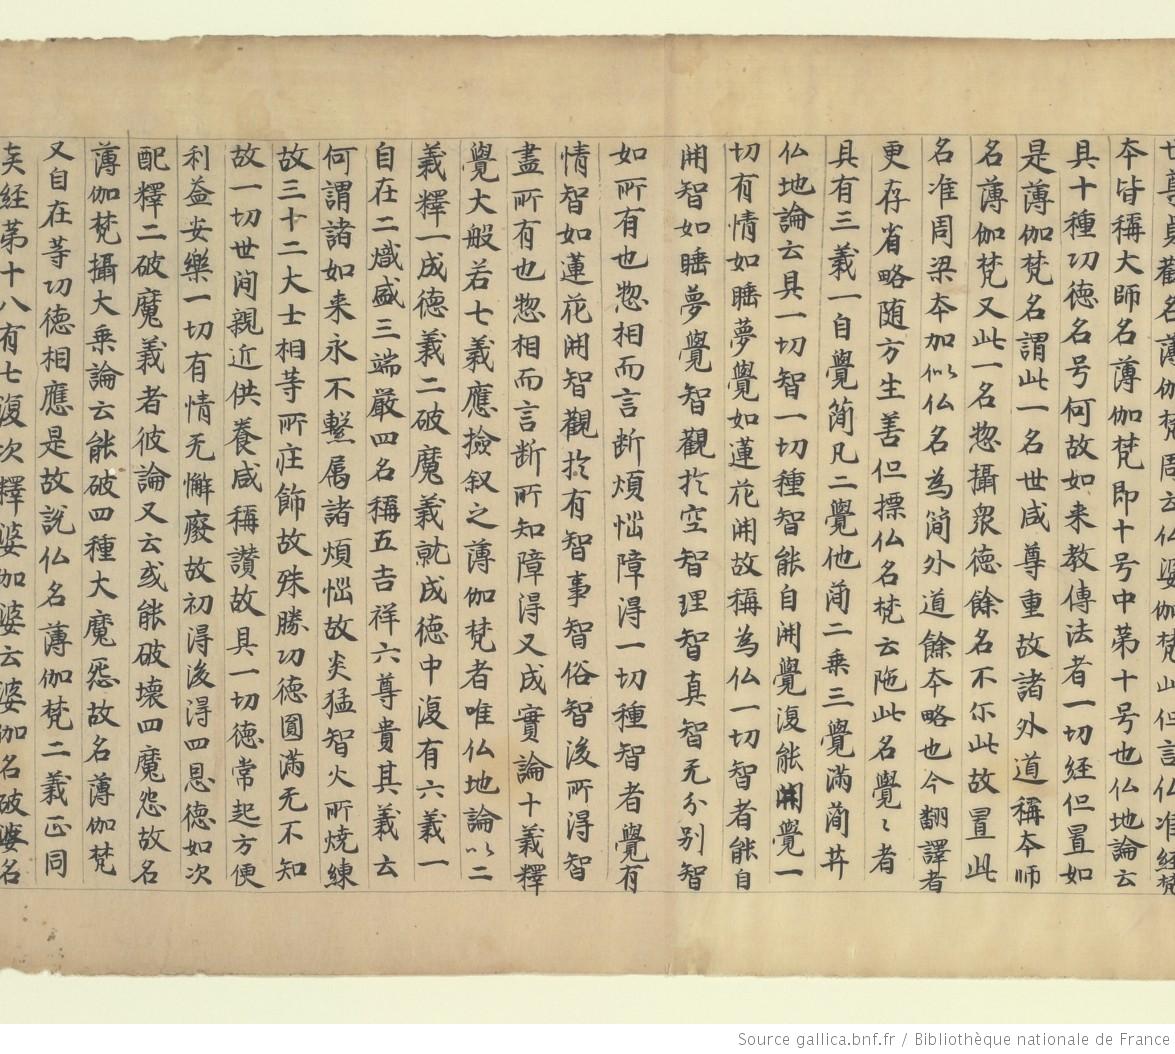 本皆稱大師名薄伽梵即十号中苐十号也仏地論云
具十種㓛德名号何故如来教傳法者一切経但置如
是薄伽梵名謂此一名世咸尊重故諸外道稱本師
名薄伽梵又此一名惣攝衆德餘名不尒此故置此
名准周梁本加似仏名為簡外道餘本略也今翻譯者
更存省略随方生善但摽仏名梵云陁此名覺〻者
具有三義一自覺簡凡二覺他簡二乗三覺滿簡𦬇
仏地論云具一切智一切種智能自開覺復能開覺一
切有情如睡夢覺如蓮花開故稱為仏一切智者能自
開智如睡夢覺智觀於空智理智真智无分别智
如所有也惣相而言断煩惱障得一切種智者覺有
情智如蓮花開智觀於有智事智俗智後所得智
盡所有也惣相而言断所知障得又成實論十義釋
覺大般若七義應撿叙之薄伽梵者唯仏地論以二
義釋一成德義二破魔義就成德中復有六義一
自在二熾盛三端嚴四名稱五吉祥六尊貴其義云
何謂諸如来永不繫属諸煩惱故炎猛智火所燒練
故三十二大士相等所庄飾故殊勝㓛德圓滿无不知
故一切世间親近供養咸稱讃故具一切德常起方便
利益安樂一切有情无懈廢故初得後得四恩德如次
配釋二破魔義者彼論又云或能破壞四魔怨故名
薄伽梵攝大乗論云能破四種大魔怨故名薄伽梵
又自在等㓛德相應是故說仏名薄伽梵二義正同
矣経苐十八有七復次釋婆伽婆云婆伽名破婆名
Source gallica.bnf.fr / Bibliothèque nationale de France